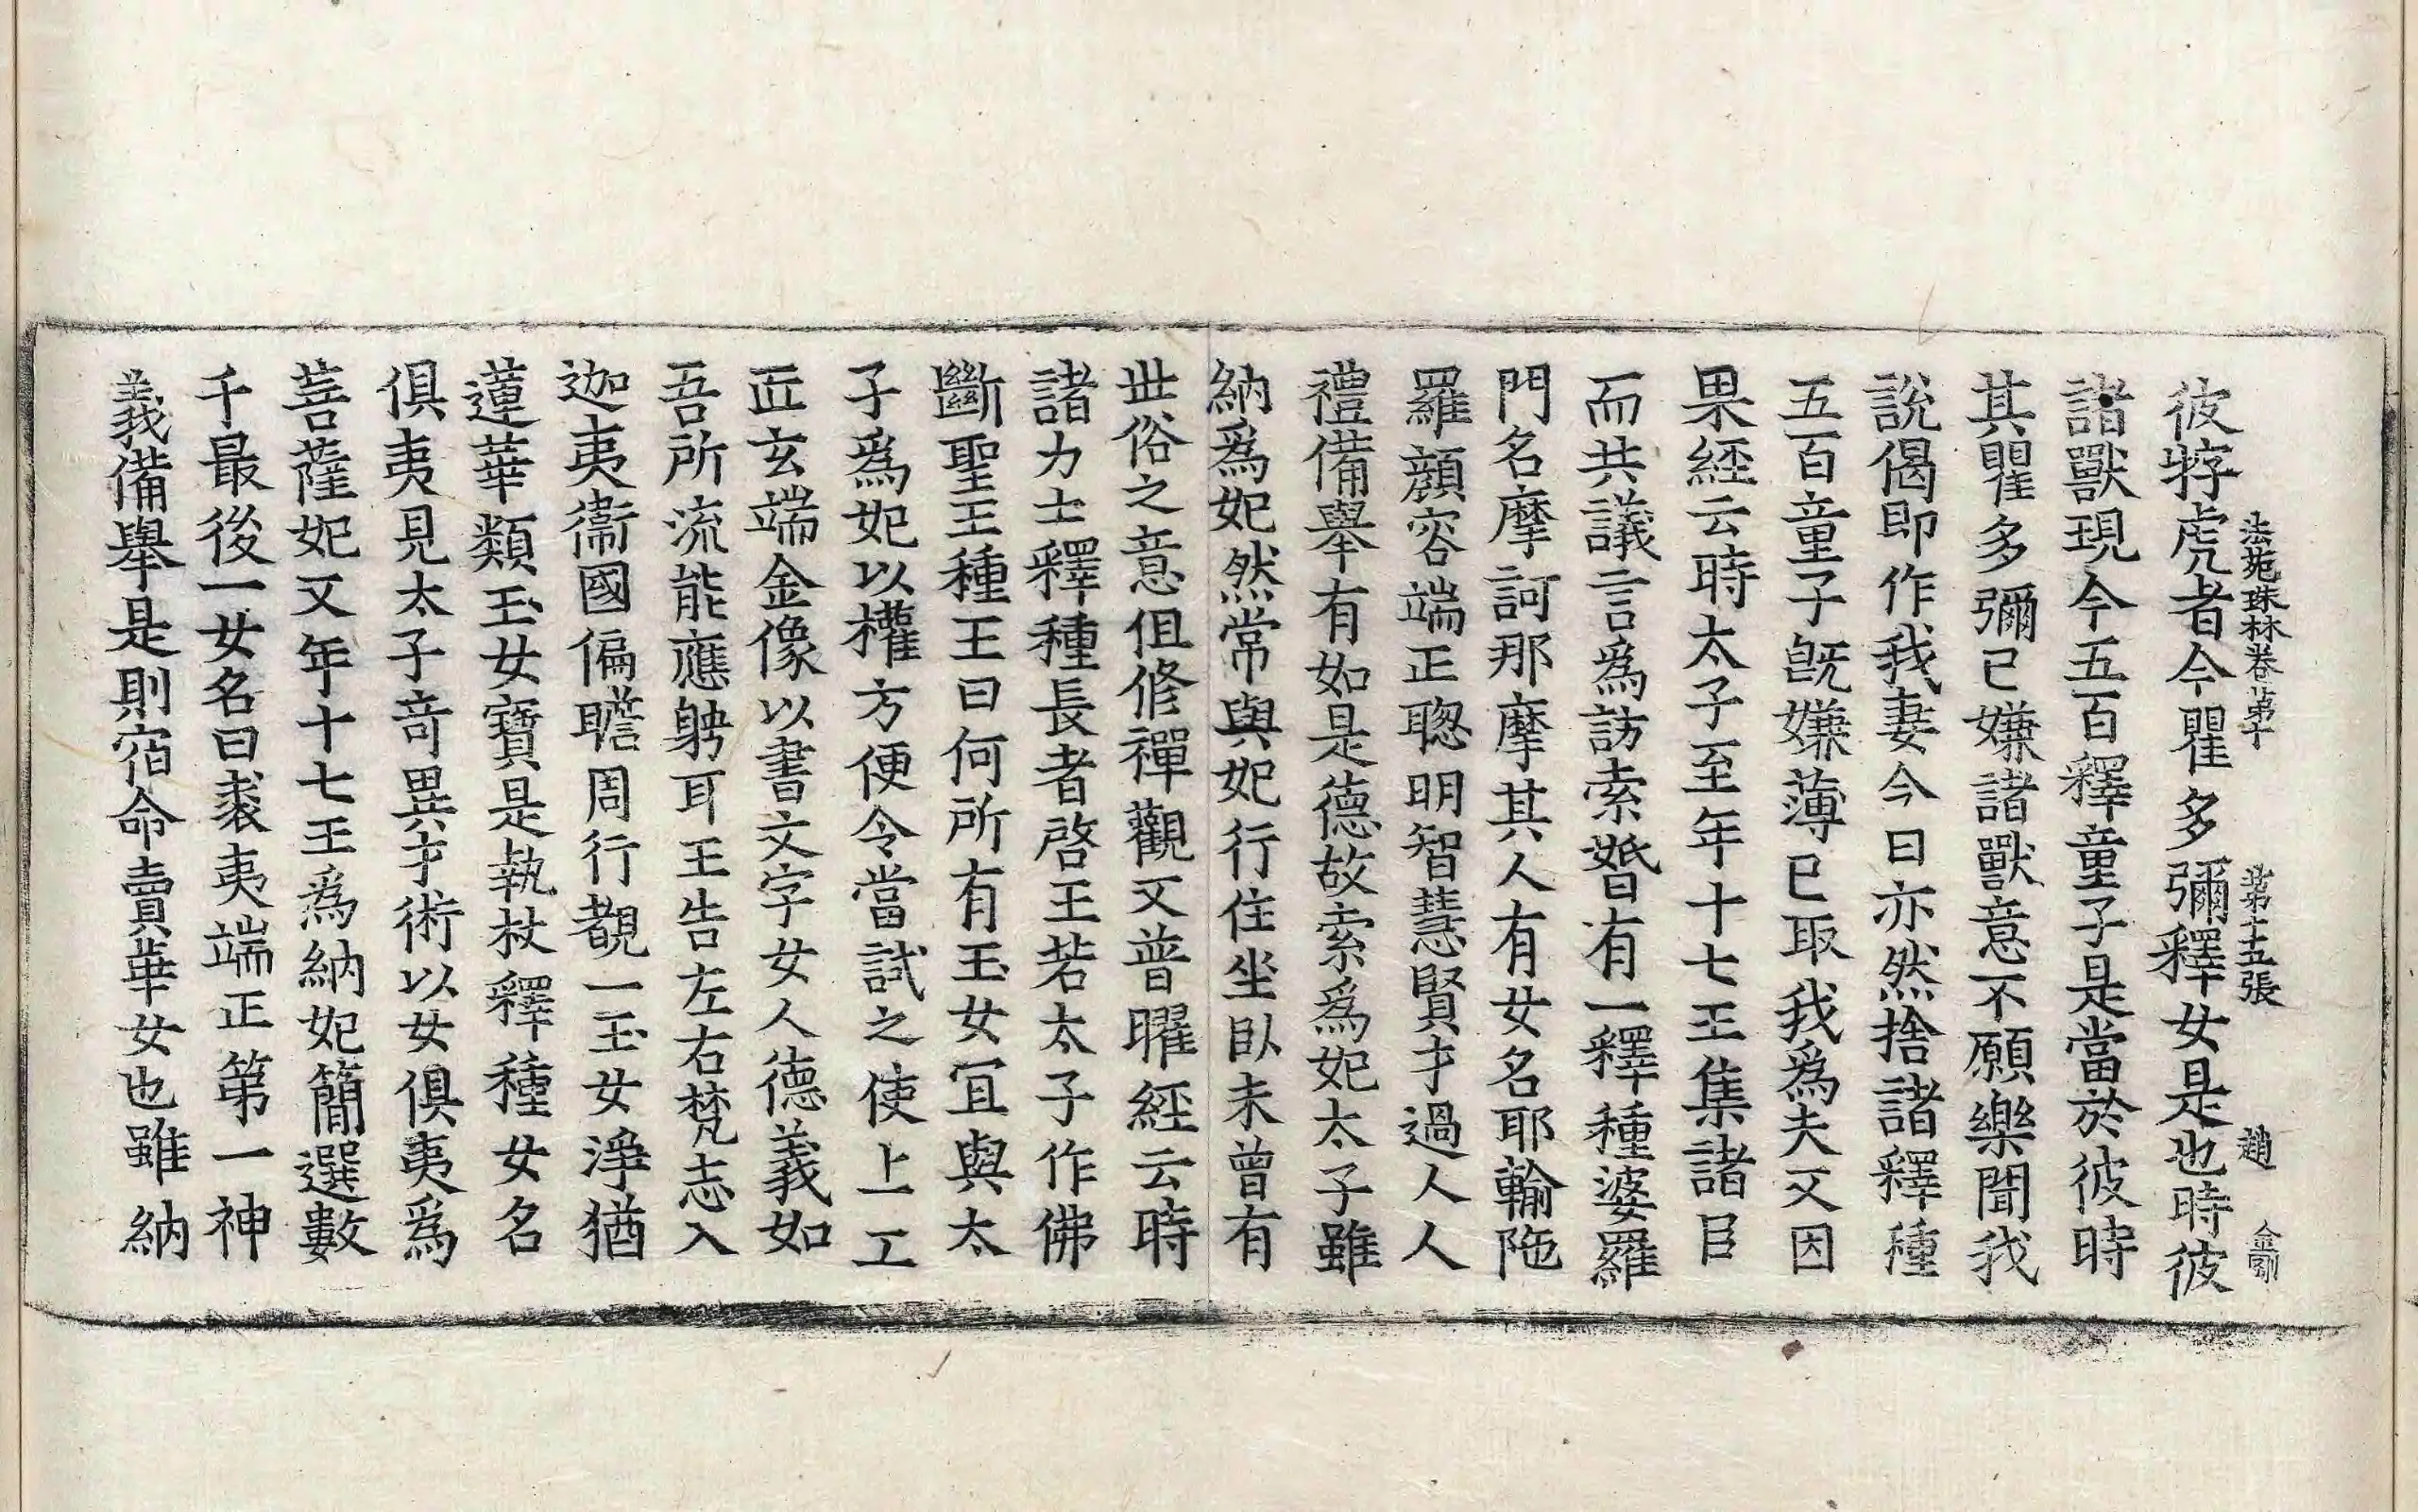 法苑珠林卷第十 第十五張 趙 金剛
彼牸虎者今瞿多彌釋女是也時彼
諸獸現今五百釋童子是當於彼時
其瞿多彌已嫌諸獸意不願樂聞我
說偈即作我妻今日亦然捨諸釋種
五百童子旣嫌薄已取我爲夫又因
果經云時太子至年十七王集諸臣
而共議言爲訪索婚有一釋種婆羅
門名摩訶那摩其人有女名耶輸陁
羅顏容端正聰明智慧賢才過人人
禮備舉有如是德故索爲妃太子雖
納爲妃然常與妃行住坐臥未曾有
世俗之意但修禪觀又普曜經云時
諸力士釋種長者啓王若太子作佛
斷聖王種王曰何所有玉女宜與太
子爲妃以權方便令當試之使上工
匠玄端金像以書文字女人德義如
吾所流能應娉耳王告左右梵志入
迦夷衞國徧瞻周行覩一玉女淨猶
蓮華類玉女寶是執杖釋種女名
俱夷見太子奇異才術以女俱夷爲
菩薩妃又年十七王爲納妃簡選數
千最後一女名曰裘夷端正第一神
義備舉是則宿命賣華女也雖納